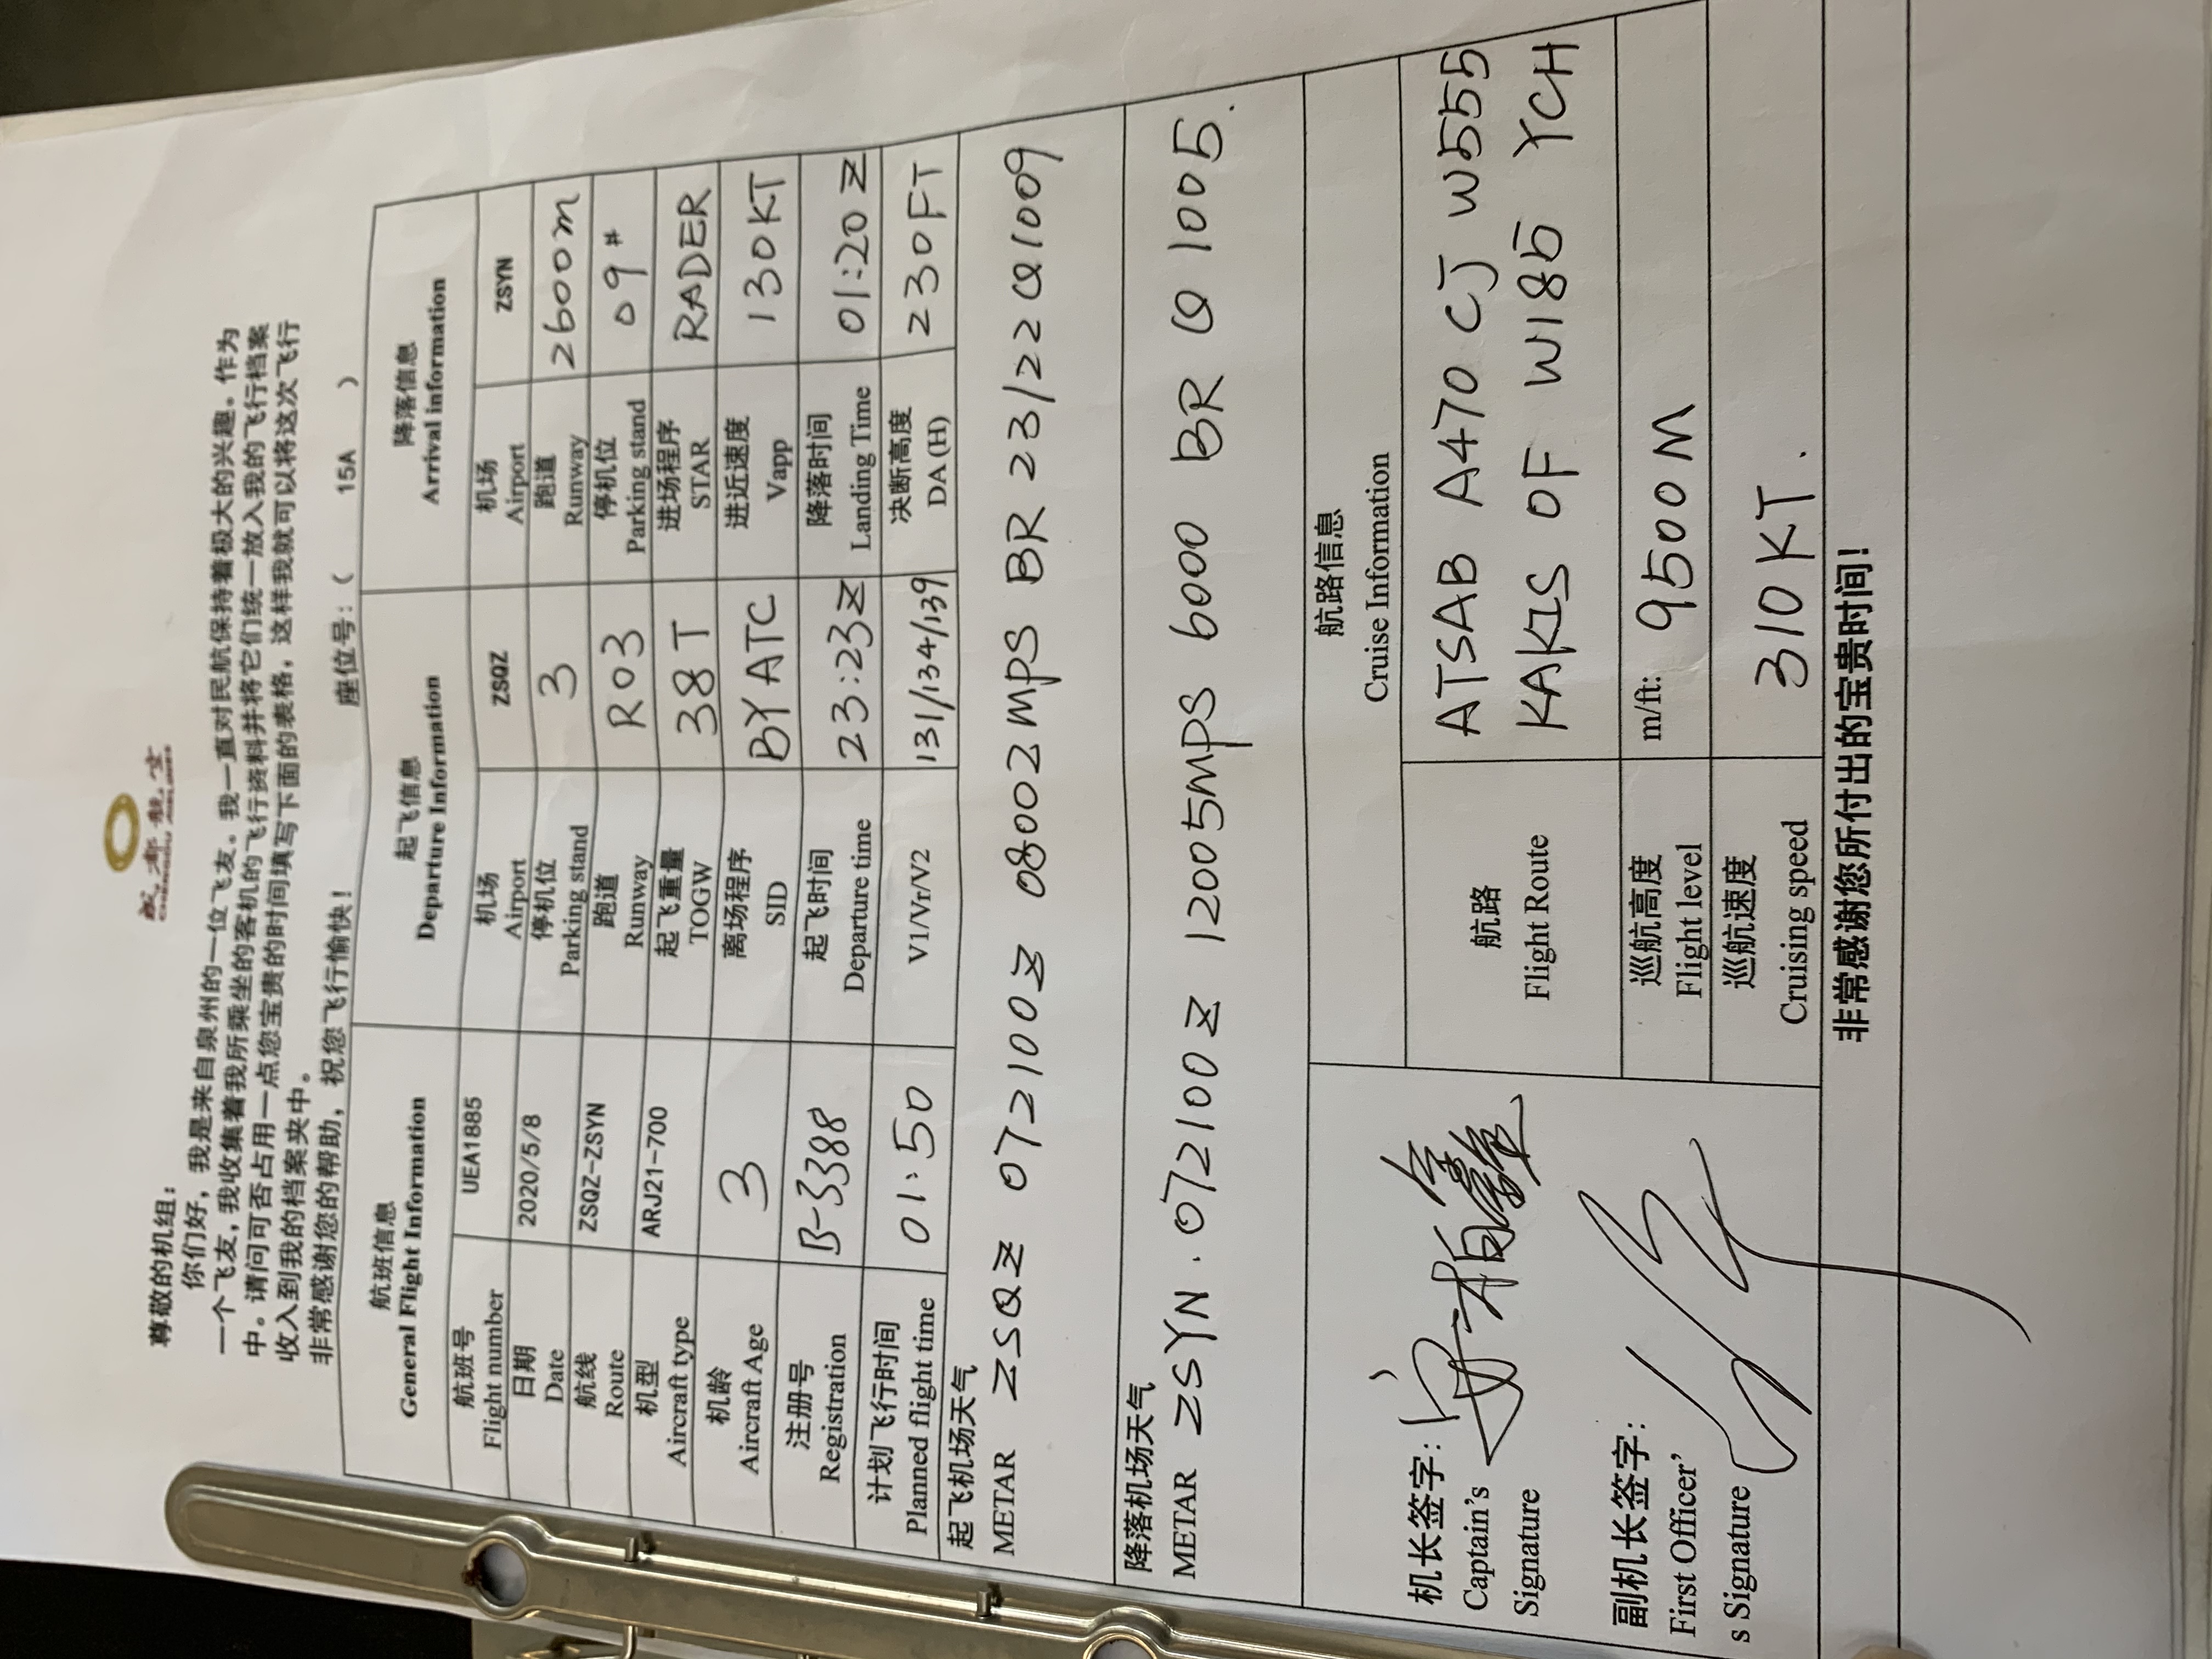 成都航空
CHENGDU AIRLINES
尊敬的机组：
你们好，我是来自泉州的一位飞友。我一直对民航保持着极大的兴趣。作为
一个飞友，我收集着我所乘坐的客机的飞行资料并将它们统一放入我的飞行档案
中。请问可否占用一点您宝贵的时间填写下面的表格，这样我就可以将这次飞行
收入到我的档案夹中。
非常感谢您的帮助，祝您飞行愉快！ 座位号：（ 15A ）
航班信息 起飞信息 降落信息
General Flight Information Departure Information Arrival information
航班号 UEA1885 机场 ZSQZ 机场 ZSYN
Flight number Airport Airport
日期 2020/5/8 停机位 3 跑道 2600m
Date Parking stand Runway
航线 ZSQZ-ZSYN 跑道 R03 停机位 09#
Route Runway Parking stand
机型 ARJ21-700 起飞重量 38T 进场程序 RADER
Aircraft type TOGW STAR
机龄 3 离场程序 BY ATC 进近速度 130KT
Aircraft Age SID Vapp
注册号 B-3388 起飞时间 23:23Z 降落时间 01:20Z
Registration Departure time Landing Time
计划飞行时间 01:50 V1/Vr/V2 131/134/139 决断高度 230FT
Planned flight time DA (H)
起飞机场天气
METAR ZSQZ 072100Z 08002MPS BR 23/22 Q1009
降落机场天气
METAR ZSYN. 072100Z 12005MPS 6000 BR Q1005.
航路信息
Cruise Information
机长签字： 安柏鑫
Captain's
Signature
航路 ATSAB A470 CJ W555
Flight Route KAKIS OF W185 YCH
副机长签字：
First Officer'
s Signature
巡航高度 m/ft: 9500M
Flight level
巡航速度 310KT.
Cruising speed
非常感谢您所付出的宝贵时间！